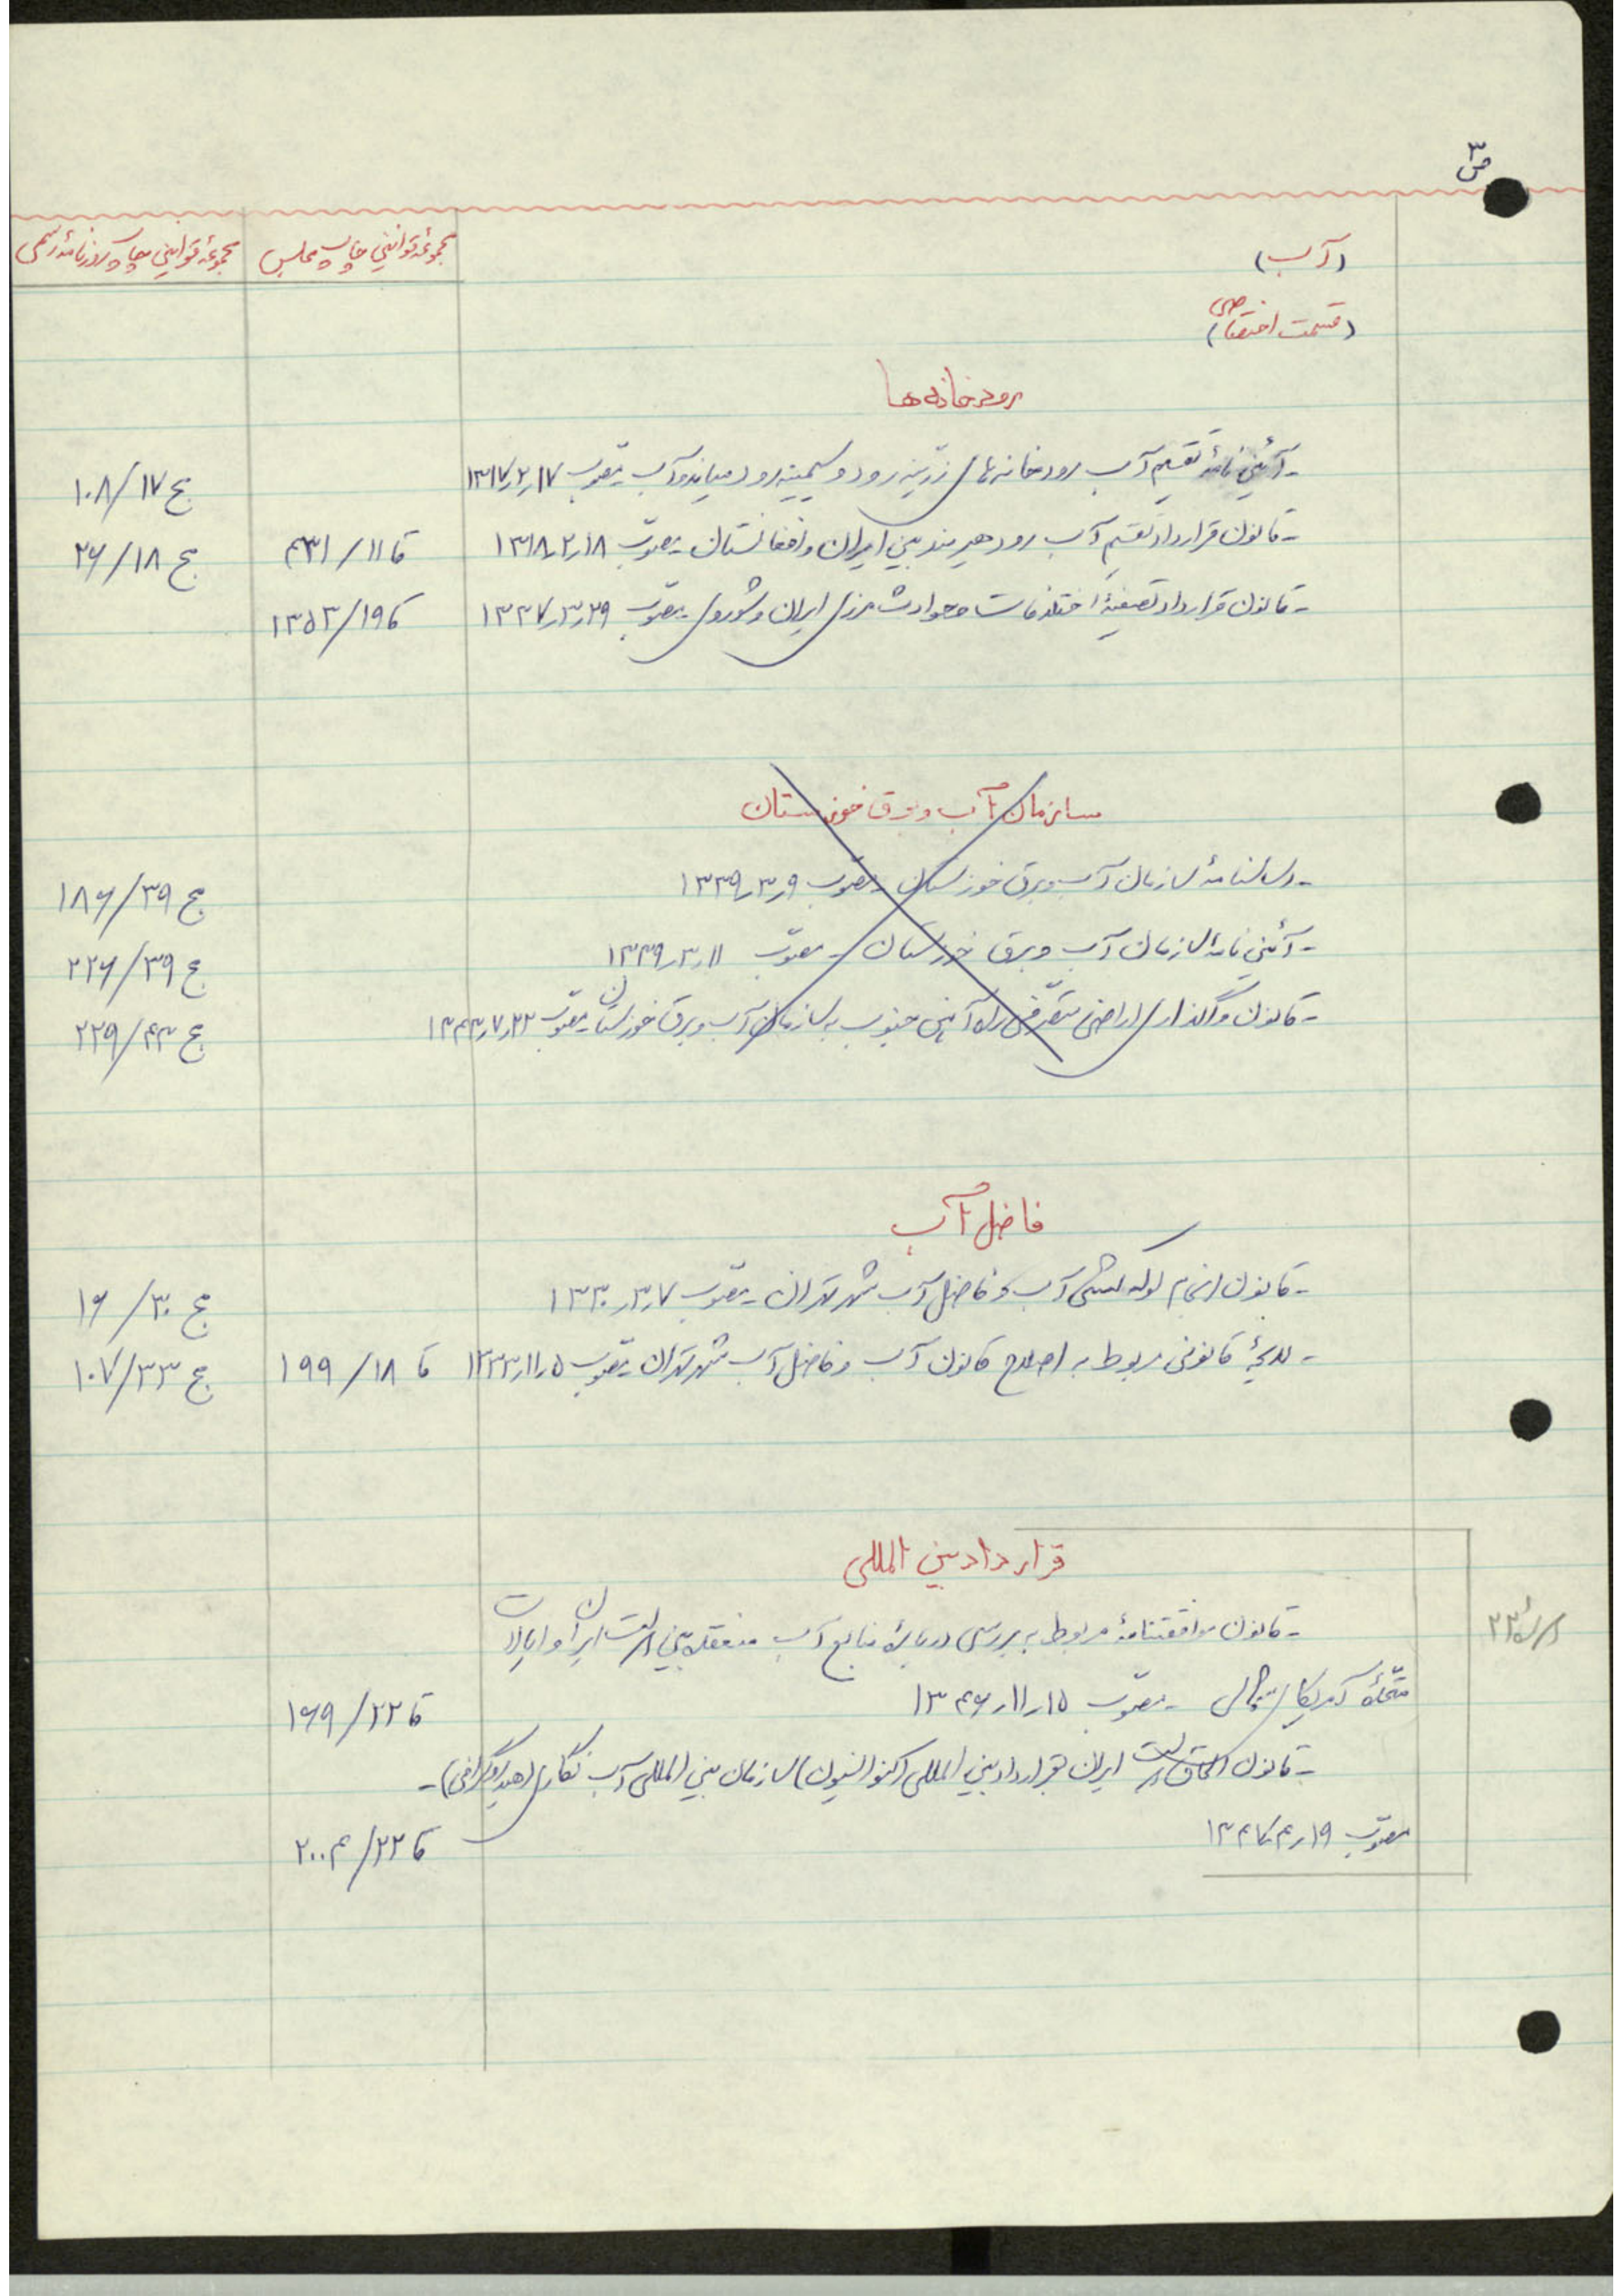 ص ۳
(آب) مجموعهٔ قوانین چاپ مجلس مجموعهٔ قوانین چاپ روزنامهٔ رسمی
(قسمت اختصاصی)
رودخانه‌ها
- آئین نامهٔ تقسیم آب رودخانه‌های زرینه رود و سیمینه رود میاندوآب مصوب ۱۳۱۷٫۲٫۱۷ ج ۱۰۸/۱۷
- قانون قرارداد تقسیم آب رود هیرمند بین ایران و افغانستان مصوب ۱۳۱۸٫۲٫۱۸ قا ۴۳۱/۱۱ ج ۲۶/۱۸
- قانون قرارداد تصفیهٔ اختلافات و حوادث مرزی ایران و شوروی مصوب ۱۳۳۷٫۳٫۲۹ قا ۱۳۵۳/۱۹
سازمان آب و برق خوزستان
- اساسنامهٔ سازمان آب و برق خوزستان مصوب ۱۳۳۹٫۳٫۹ ج ۱۸۶/۳۹
- آئین نامهٔ سازمان آب و برق خوزستان - مصوب ۱۳۳۹٫۳٫۱۱ ج ۲۲۶/۳۹
- قانون واگذاری اراضی متصرفی راه آهن جنوب به سازمان آب و برق خوزستان مصوب ۱۳۴۳٫۷٫۲۲ ج ۲۲۹/۴۳
فاضل آب
- قانون انجام لوله کشی آب و فاضل آب شهر تهران - مصوب ۱۳۳۰٫۳٫۷ ج ۱۶/۳۰
- لایحهٔ قانونی مربوط به اصلاح قانون آب و فاضل آب شهر تهران مصوب ۱۳۳۳٫۱۱٫۵ قا ۱۹۹/۱۸ ج ۱۰۷/۳۳
قرارداد بین المللی
- قانون موافقتنامهٔ مربوط به بررسی دربارهٔ منابع آب منعقده بین دولت ایران و ایالات
متحدهٔ آمریکای شمالی - مصوب ۱۳۴۶٫۱۱٫۱۵ قا ۱۶۹/۲۲
- قانون الحاق دولت ایران بقرارداد بین المللی (کنوانسیون) سازمان بین المللی آب نگاری (هیدروگرافی) -
مصوب ۱۳۴۷٫۴٫۱۹ قا ۲۰۰۴/۲۲